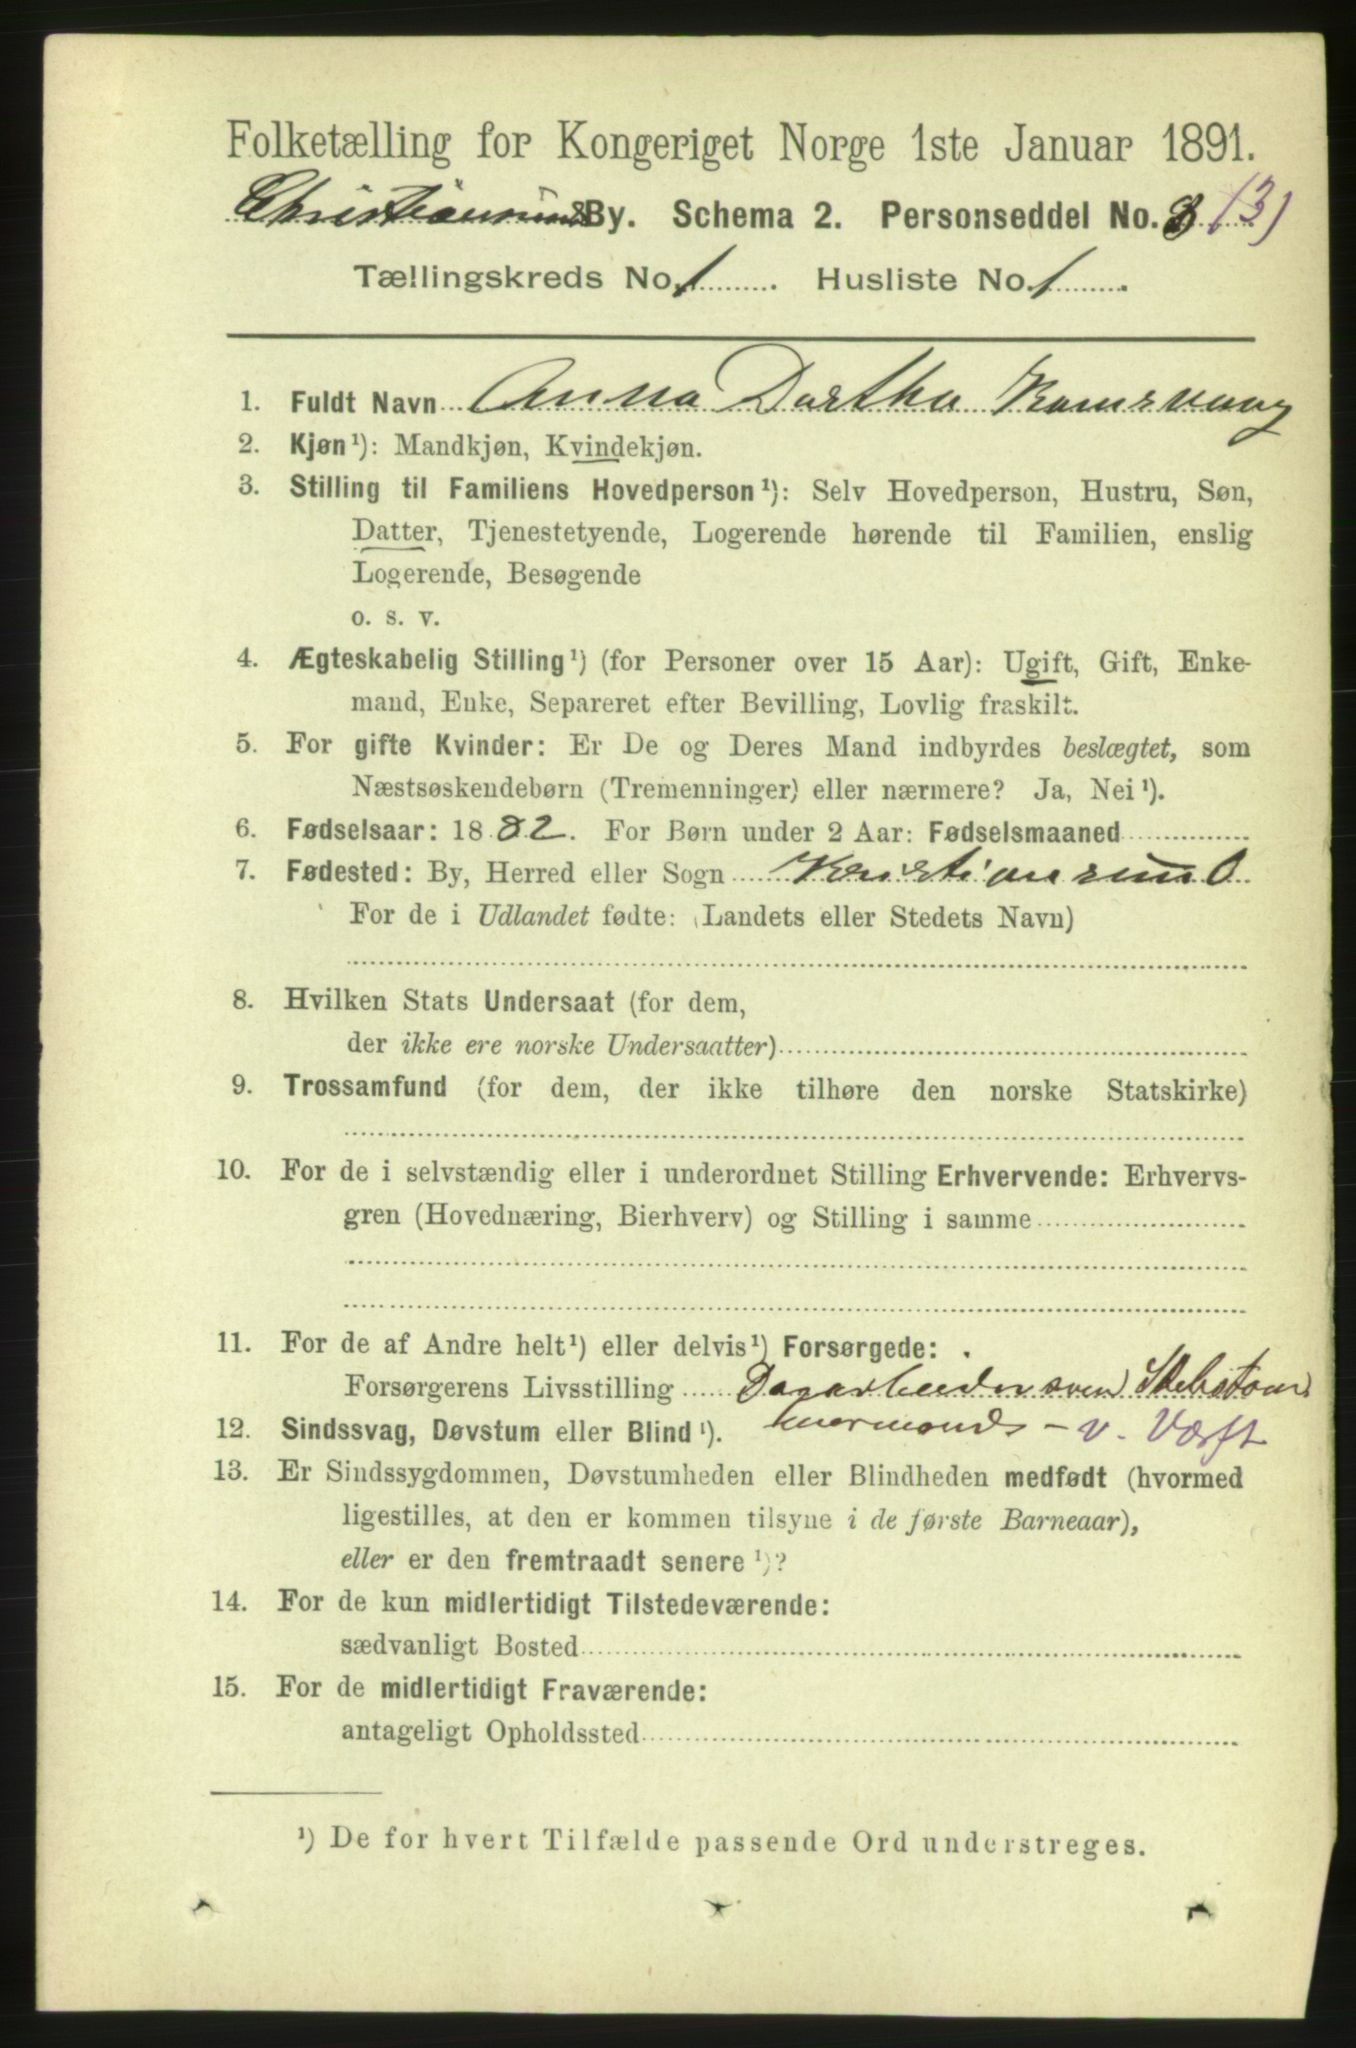 Folketælling for Kongeriget Norge 1ste Januar 1891.
Christiansunds By. Schema 2. Personseddel No. 3 (3)
Tællingskreds No. 1 Husliste No. 1
1. Fuldt Navn Anna Dorthea Ramsvaag
2. Kjøn¹): Mandkjøn, Kvindekjøn.
3. Stilling til Familiens Hovedperson¹): Selv Hovedperson, Hustru, Søn,
Datter, Tjenestetyende, Logerende hørende til Familien, enslig
Logerende, Besøgende
o. s. v.
4. Ægteskabelig Stilling¹) (for Personer over 15 Aar): Ugift, Gift, Enke-
mand, Enke, Separeret efter Bevilling, Lovlig fraskilt.
5. For gifte Kvinder: Er De og Deres Mand indbyrdes beslægtet, som
Næstsøskendebørn (Tremenninger) eller nærmere? Ja, Nei¹).
6. Fødselsaar: 1882. For Børn under 2 Aar: Fødselsmaaned
7. Fødested: By, Herred eller Sogn Kristiansund
For de i Udlandet fødte: (Landets eller Stedets Navn)
8. Hvilken Stats Undersaat (for dem,
der ikke ere norske Undersaatter)
9. Trossamfund (for dem, der ikke tilhøre den norske Statskirke)
10. For de i selvstændig eller i underordnet Stilling Erhvervende: Erhvervs-
gren (Hovednæring, Bierhverv) og Stilling i samme
11. For de af Andre helt¹) eller delvis¹) Forsørgede:
Forsørgerens Livsstilling
12. Sindssvag, Døvstum eller Blind¹). - v. Værft
13. Er Sindssygdommen, Døvstumheden eller Blindheden medfødt (hvormed
ligestilles, at den er kommen tilsyne i de første Barneaar),
eller er den fremtraadt senere¹)?
14. For de kun midlertidigt Tilstedeværende:
sædvanligt Bosted
15. For de midlertidigt Fraværende:
antageligt Opholdssted
¹) De for hvert Tilfælde passende Ord understreges.